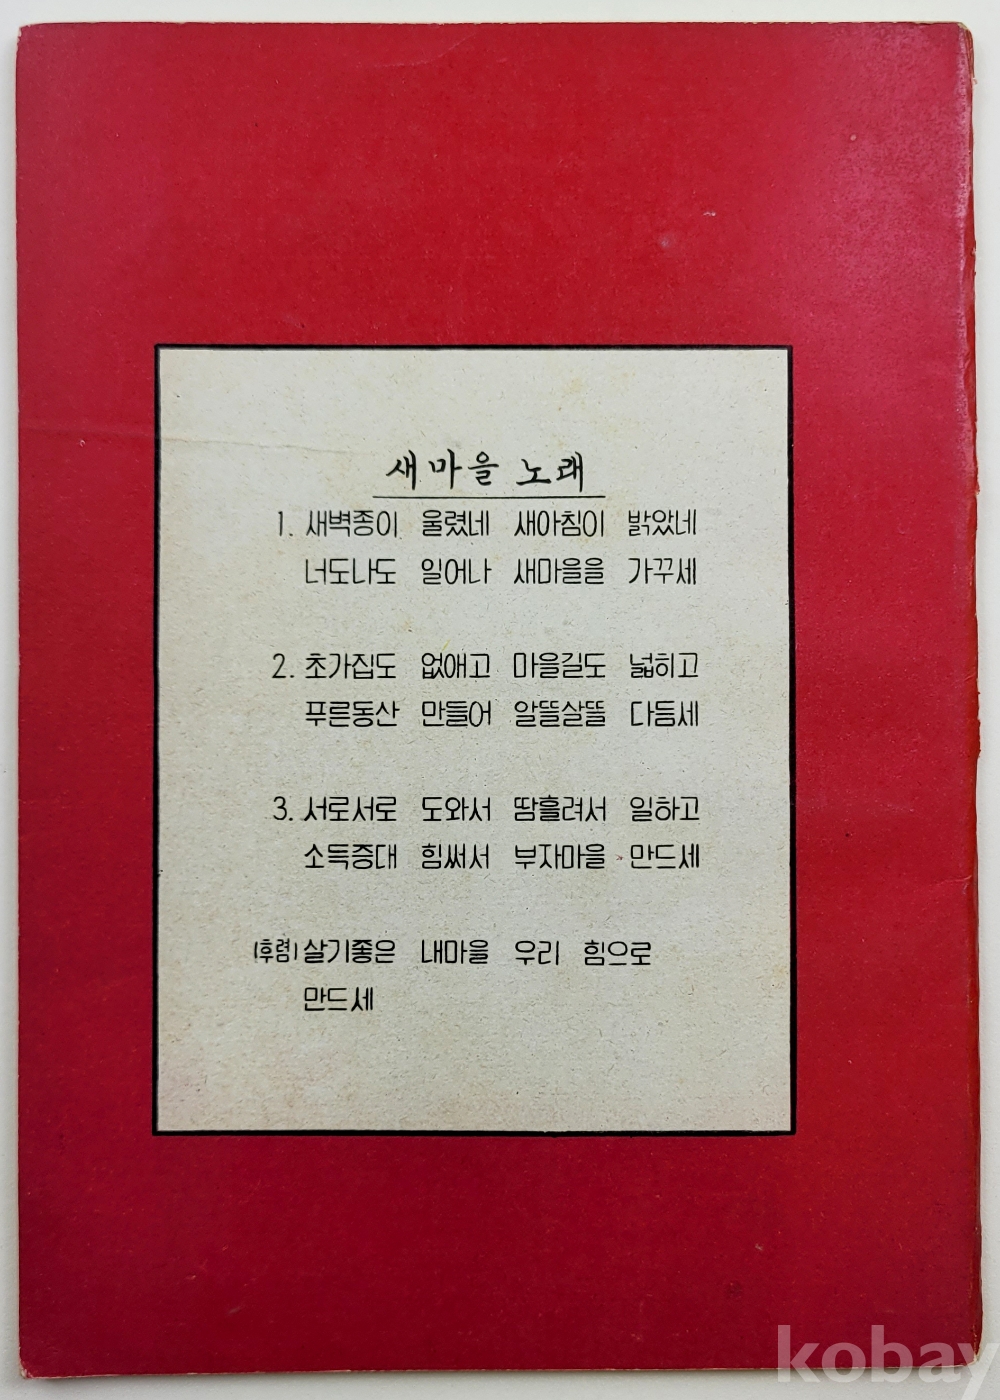 새마을 노래
1. 새벽종이 울렸네 새아침이 밝았네
너도나도 일어나 새마을을 가꾸세
2. 초가집도 없애고 마을길도 넓히고
푸른동산 만들어 알뜰살뜰 다듬세
3. 서로서로 도와서 땀흘려서 일하고
소득증대 힘써서 부자마을 만드세
(후렴) 살기좋은 내마을 우리 힘으로
만드세
kobay